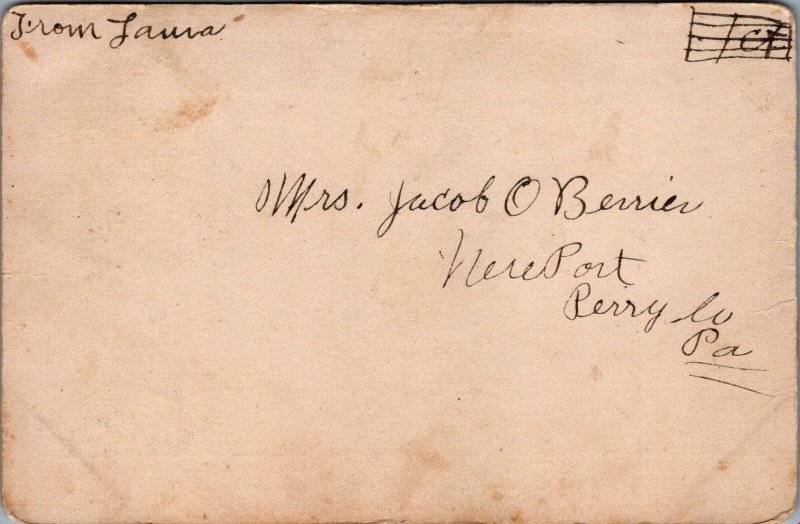 From Laura
1 ct
Mrs. Jacob O Berrier
New Port
Perry Co
Pa